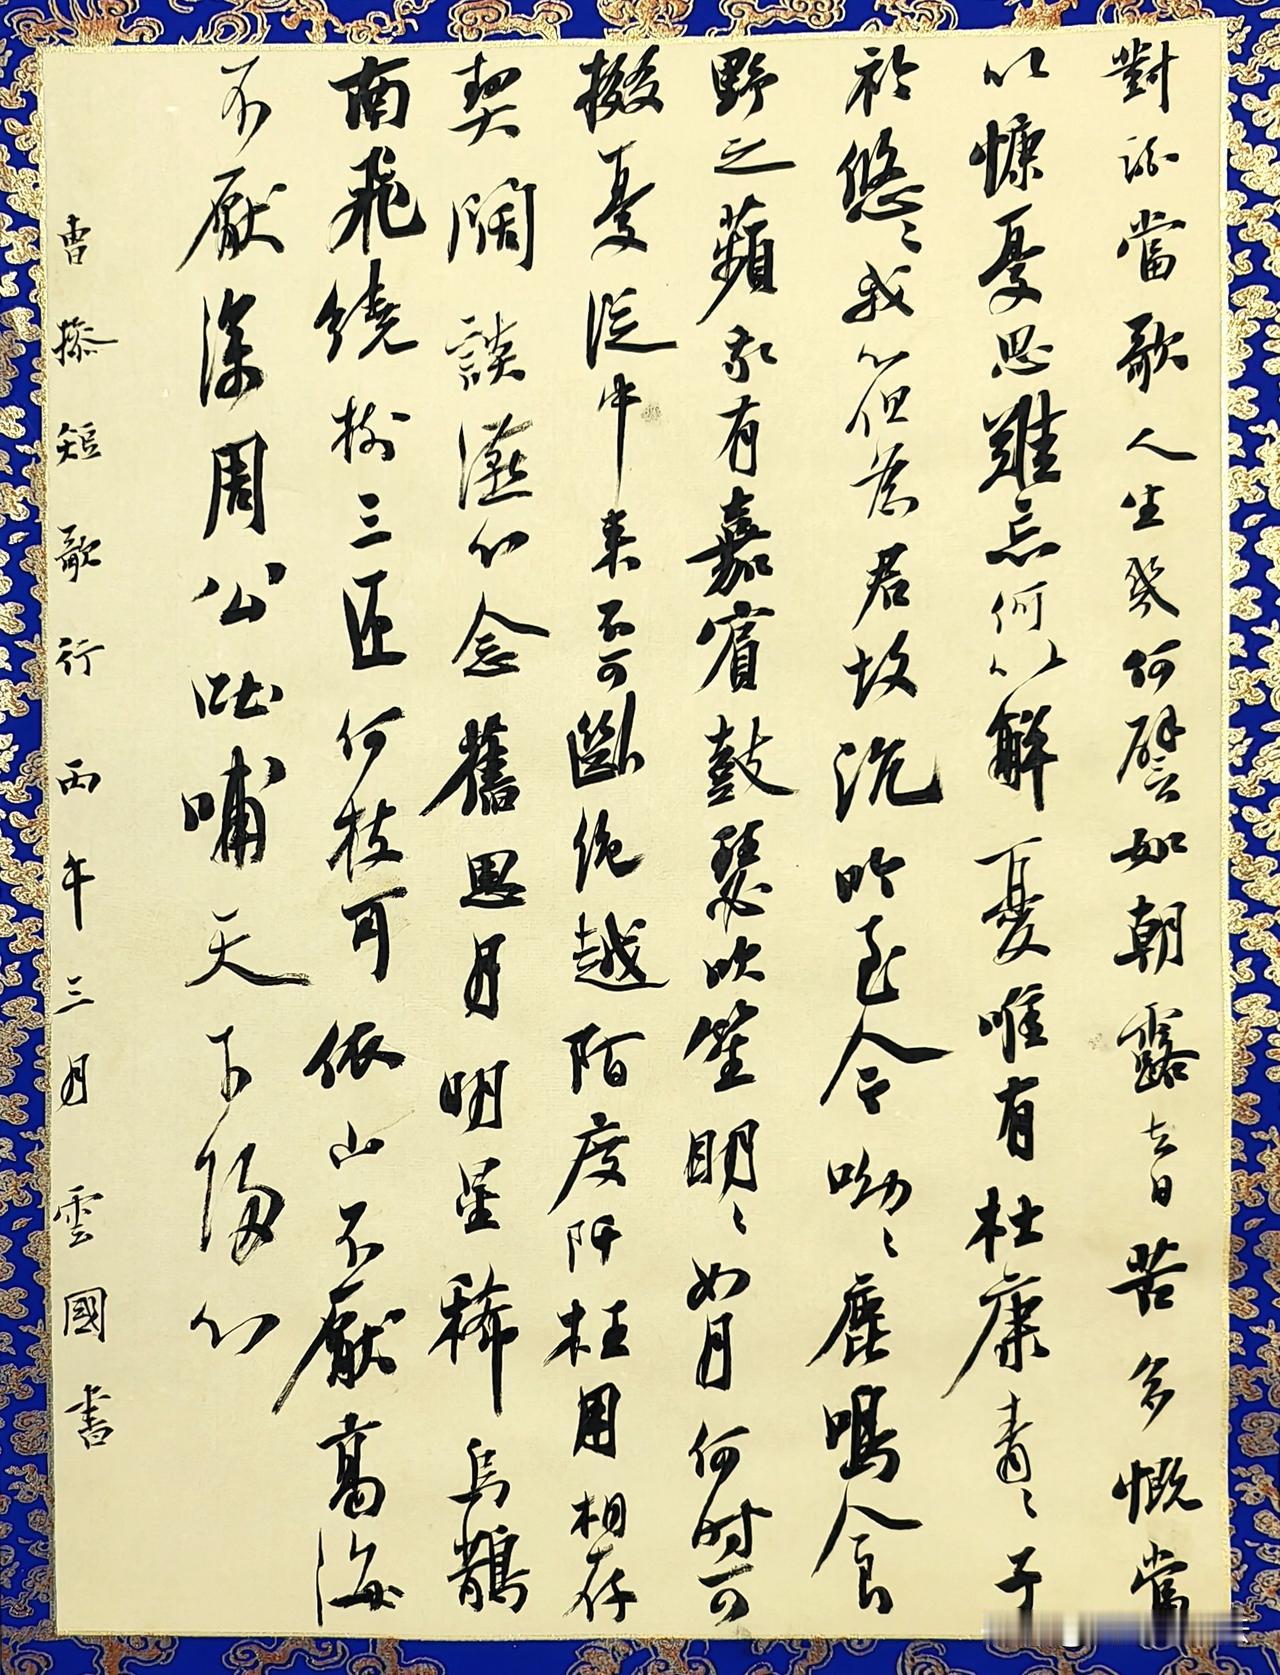 對酒當歌人生幾何譬如朝露去日苦多慨當
以慷憂思難忘何以解憂唯有杜康青々子
衿悠々我心但為君故沉吟至今呦々鹿鳴食
野之蘋我有嘉賓鼓瑟吹笙明々如月何時可
掇憂從中來不可斷絕越陌度阡枉用相存
契闊談讌心念舊恩月明星稀烏鵲
南飛繞樹三匝何枝可依山不厭高海
不厭深周公吐哺天下歸心
曹操短歌行丙午三月雲國書